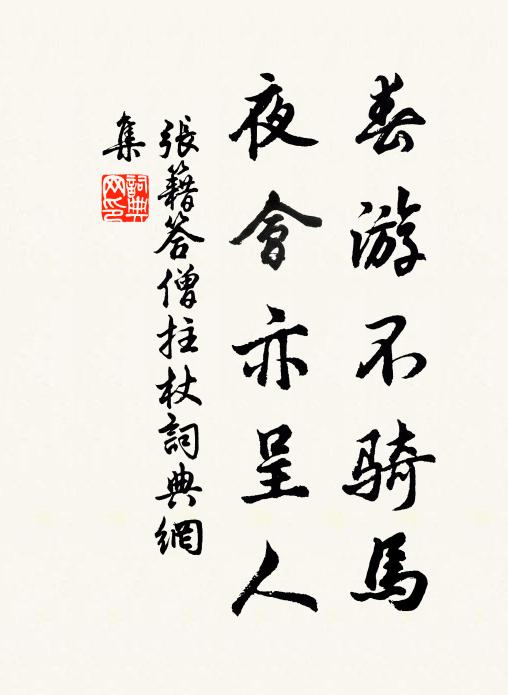 春游不骑馬
夜會亦呈人
張籍答僧拄杖詞典網
集
詞典
网印